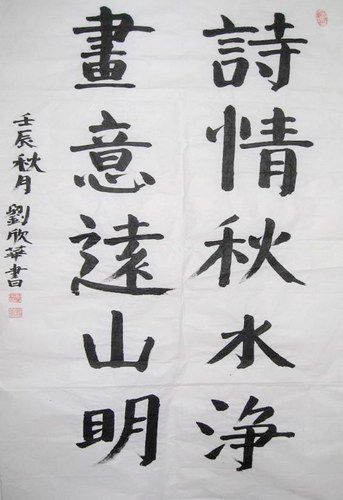 詩情秋水浄
畫意遠山明
壬辰秋月劉欣華書